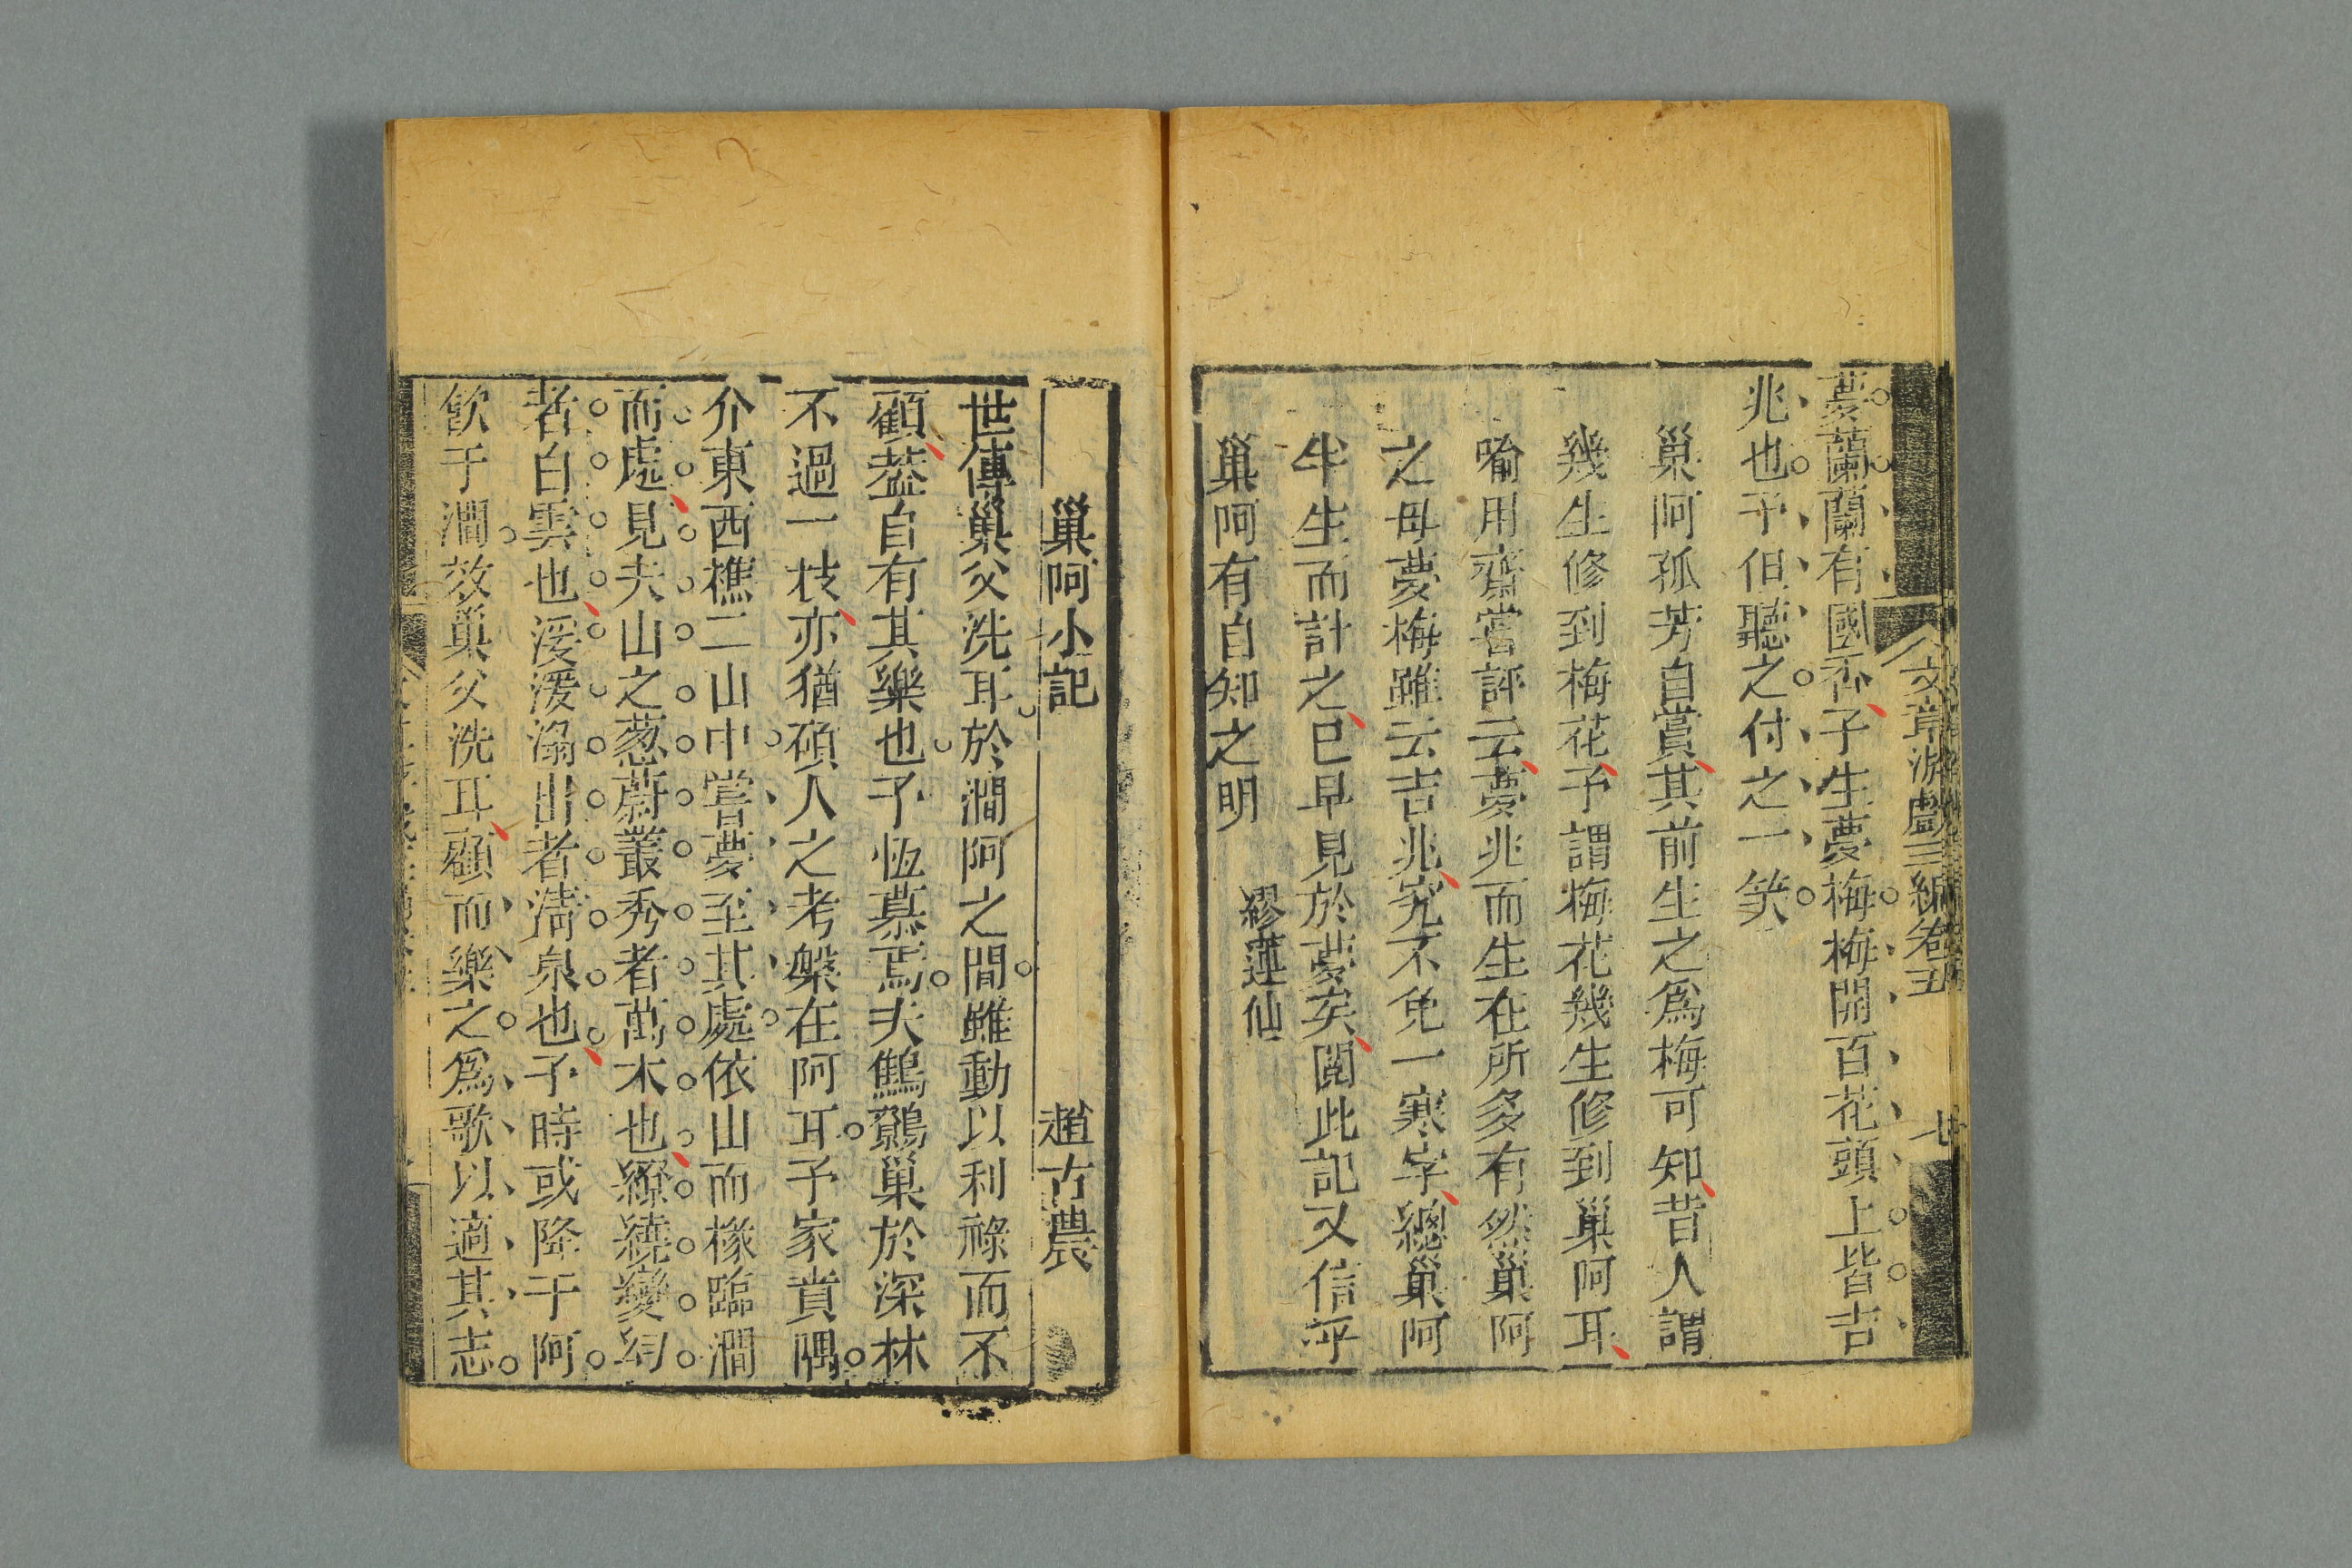 文章游戲三編卷五
廿
夢蘭蘭有國香子生夢梅梅開百花頭上皆吉
兆也予但聽之付之一笑
巢阿孤芳自賞其前生之爲梅可知昔人謂
幾生修到梅花予謂梅花幾生修到巢阿耳
喻用齋嘗評云夢兆而生在所多有然巢阿
之母夢梅雖云吉兆究不免一寒字總巢阿
半生而計之已早見於夢矣閱此記又信乎
巢阿有自知之明
繆蓮仙
巢阿小記
趙古農
世傳巢父洗耳於澗阿之間雖動以利祿而不
顧葢自有其樂也予恆慕焉夫鷦鷯巢於深林
不過一枝亦猶碩人之考槃在阿耳予家賁隅
介東西樵二山中嘗夢至其處依山而椽臨澗
而處見夫山之葱蔚叢秀者萬木也繚繞變幻
者白雲也湲湲溺出者淸泉也予時或降于阿
飮于澗效巢父洗耳顧而樂之爲歌以適其志